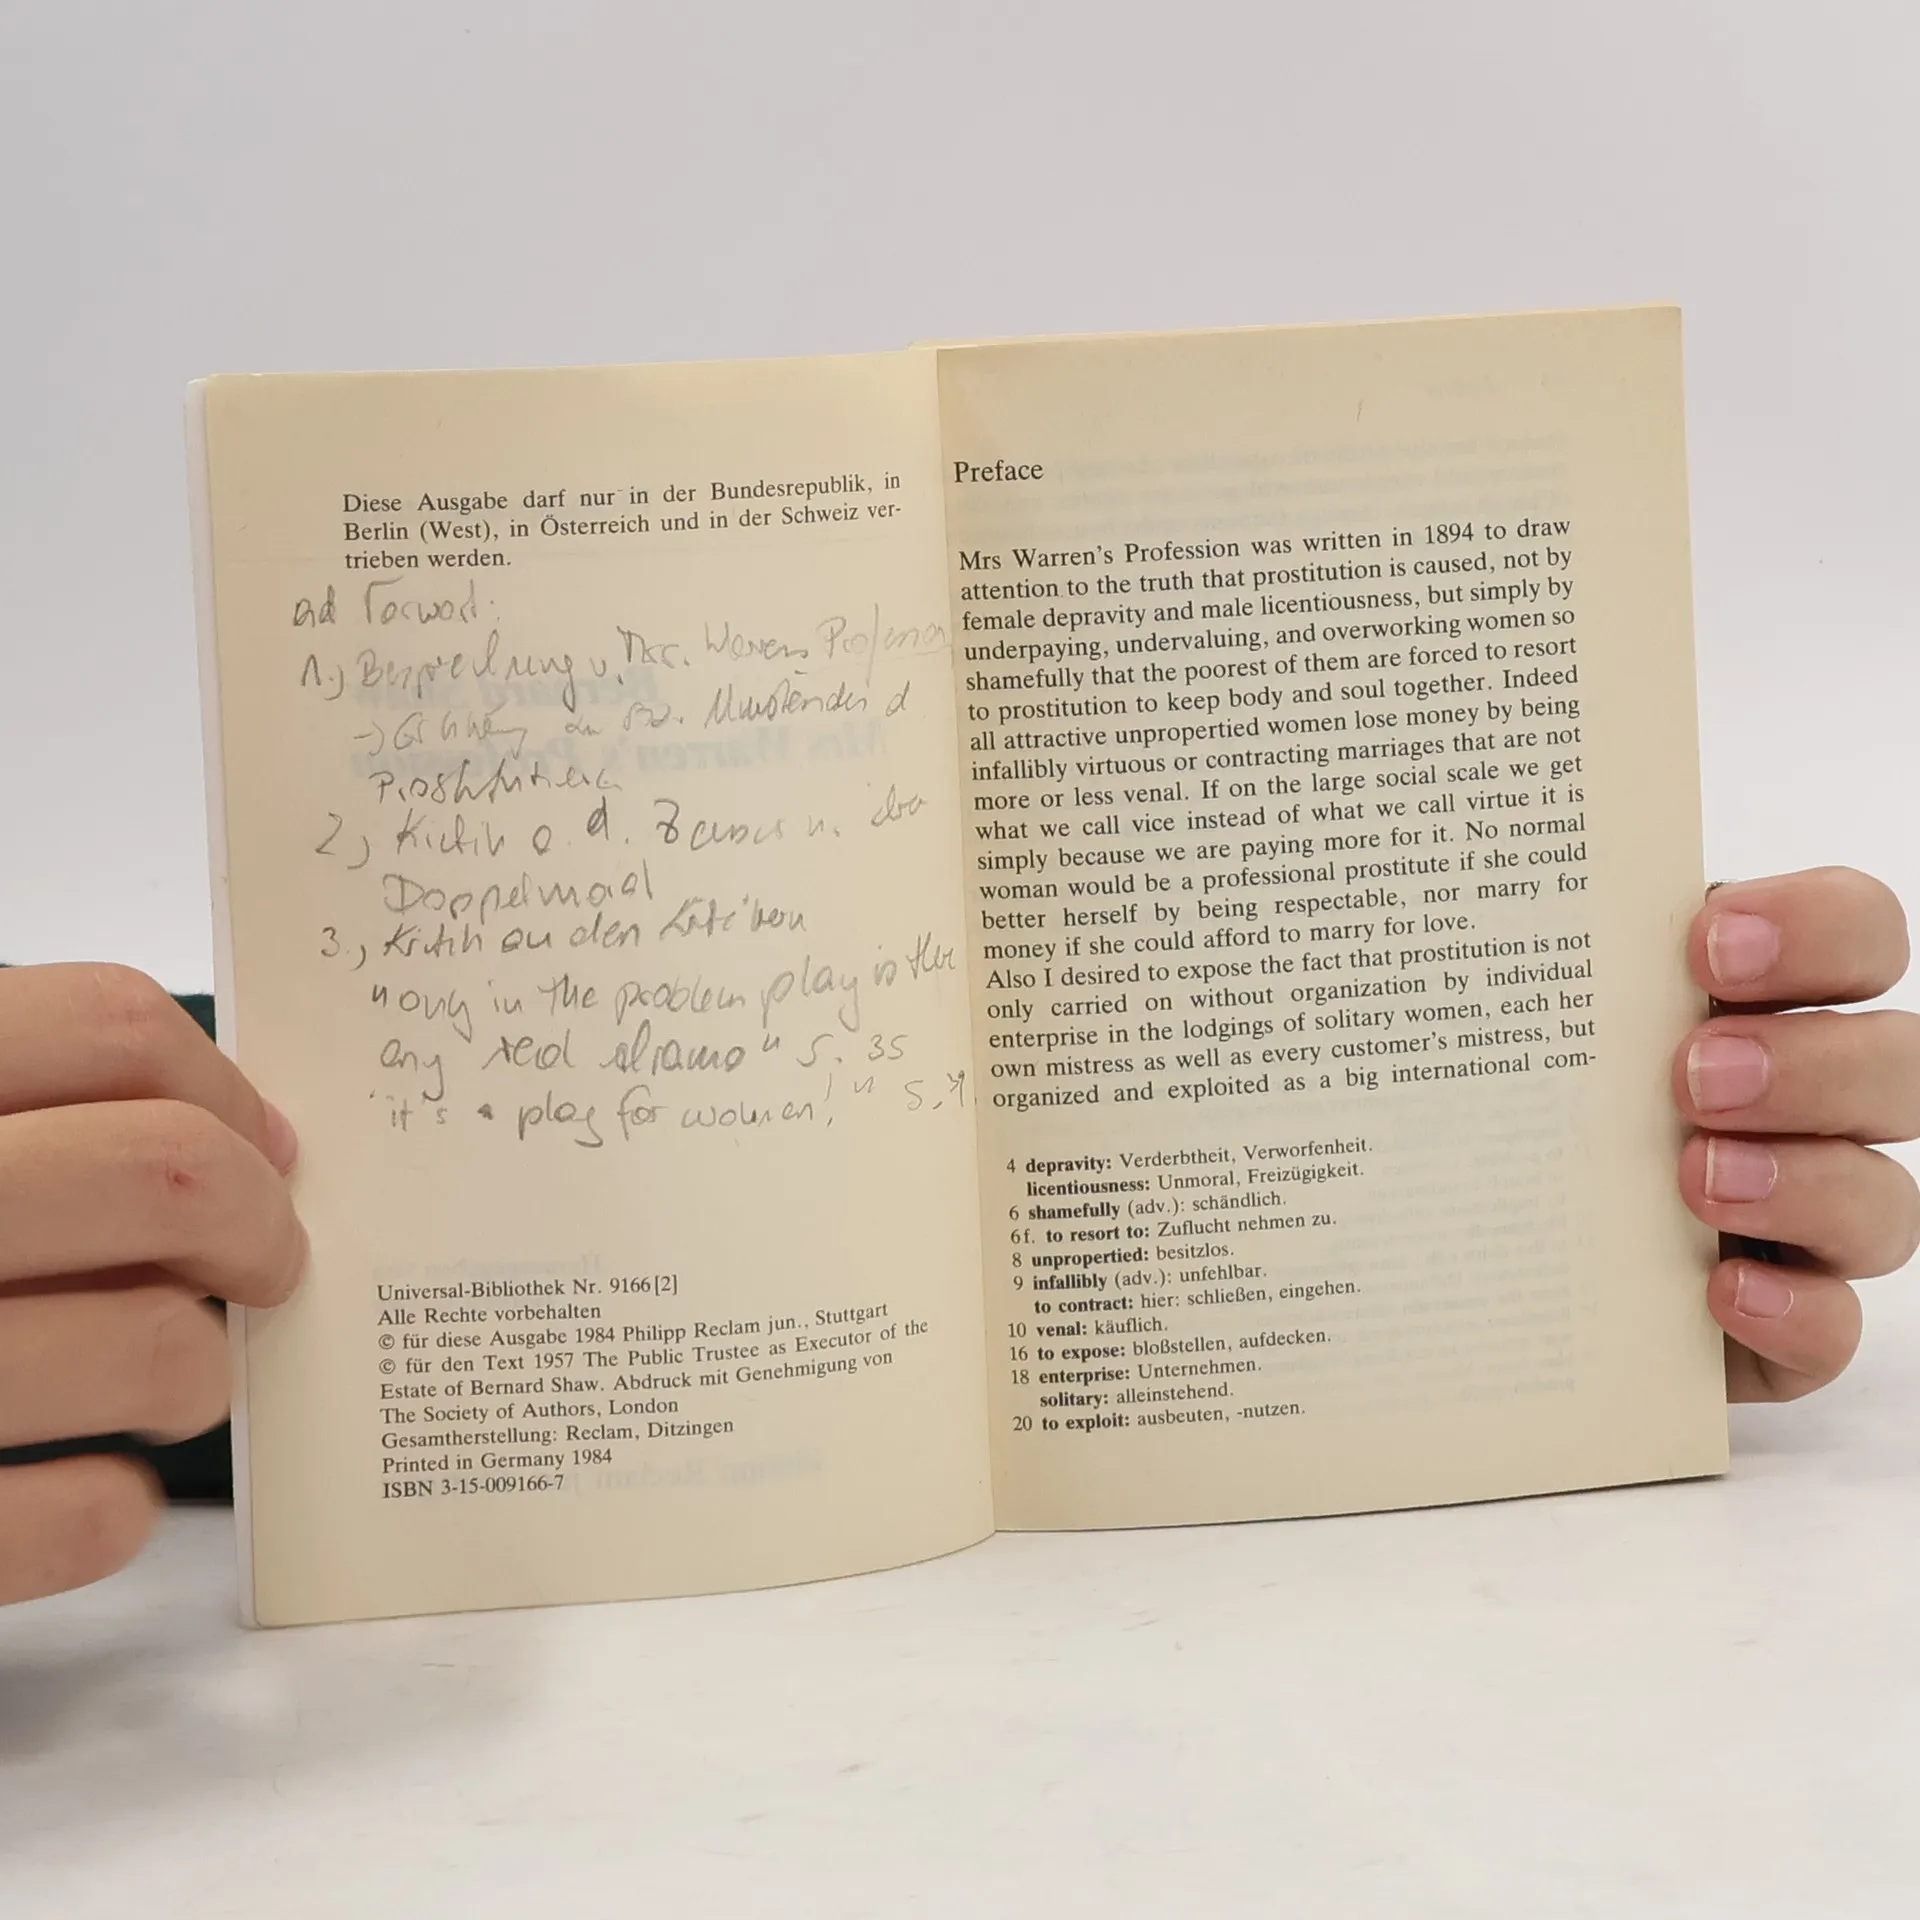 Diese Ausgabe darf nur in der Bundesrepublik, in
Berlin (West), in Österreich und in der Schweiz ver-
trieben werden.
ad Vorwort:
1.) Besprechung v. Mrs. Warrens Profession
→ zu Umständen d
Prostitution
2.) Kritik a. d. Zensur u.
Doppelmoral
3.) Kritik an den Kritikern
"only in the problem play is there
any real drama" S. 35
"it's a play for women!" S.
Universal-Bibliothek Nr. 9166[2]
Alle Rechte vorbehalten
© für diese Ausgabe 1984 Philipp Reclam jun., Stuttgart
© für den Text 1957 The Public Trustee as Executor of the
Estate of Bernard Shaw. Abdruck mit Genehmigung von
The Society of Authors, London
Gesamtherstellung: Reclam, Ditzingen
Printed in Germany 1984
ISBN 3-15-009166-7
Preface
Mrs Warren's Profession was written in 1894 to draw
attention to the truth that prostitution is caused, not by
female depravity and male licentiousness, but simply by
underpaying, undervaluing, and overworking women so
shamefully that the poorest of them are forced to resort
to prostitution to keep body and soul together. Indeed
all attractive unpropertied women lose money by being
infallibly virtuous or contracting marriages that are not
more or less venal. If on the large social scale we get
what we call vice instead of what we call virtue it is
simply because we are paying more for it. No normal
woman would be a professional prostitute if she could
better herself by being respectable, nor marry for
money if she could afford to marry for love.
Also I desired to expose the fact that prostitution is not
only carried on without organization by individual
enterprise in the lodgings of solitary women, each her
own mistress as well as every customer's mistress, but
organized and exploited as a big international com-
4 depravity: Verderbtheit, Verworfenheit.
licentiousness: Unmoral, Freizügigkeit.
6 shamefully (adv.): schändlich.
6f. to resort to: Zuflucht nehmen zu.
8 unpropertied: besitzlos.
9 infallibly (adv.): unfehlbar.
to contract: hier: schließen, eingehen.
10 venal: käuflich.
16 to expose: bloßstellen, aufdecken.
18 enterprise: Unternehmen.
solitary: alleinstehend.
20 to exploit: ausbeuten, -nutzen.